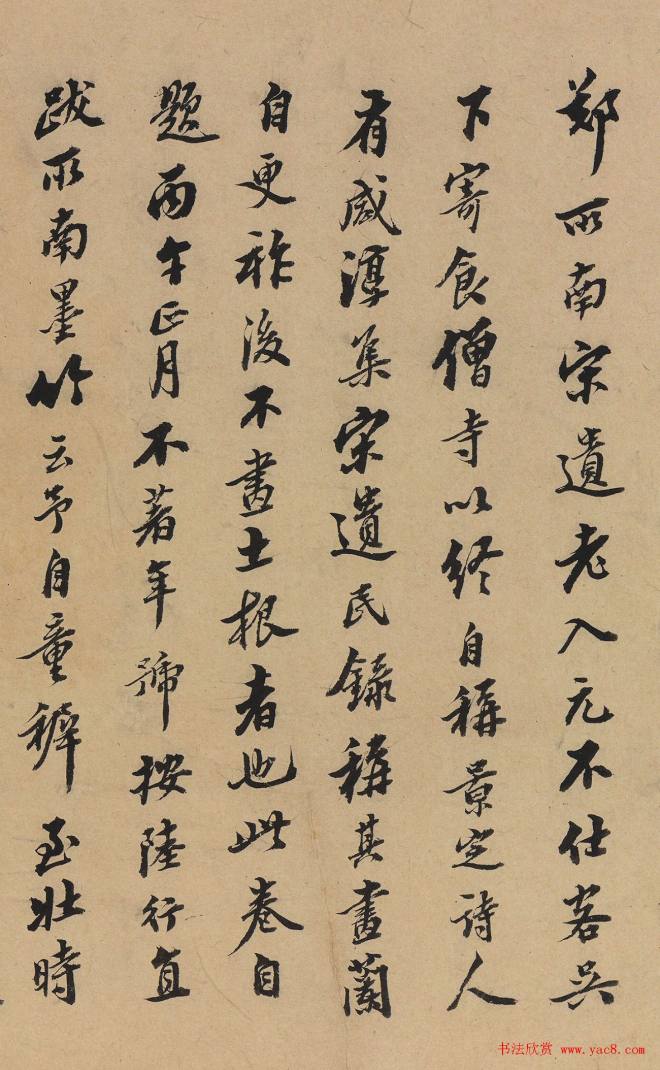 鄭所南宋遺老入元不仕客吴
下寄食僧寺以終自稱景定詩人
有咸淳集宋遺民錄稱其畫蘭
自更祚後不畫土根者也此卷自
題丙午正月不著年號按陸行直
跋所南墨竹云予自童稺至壯時
书法欣赏 www.yac8.com